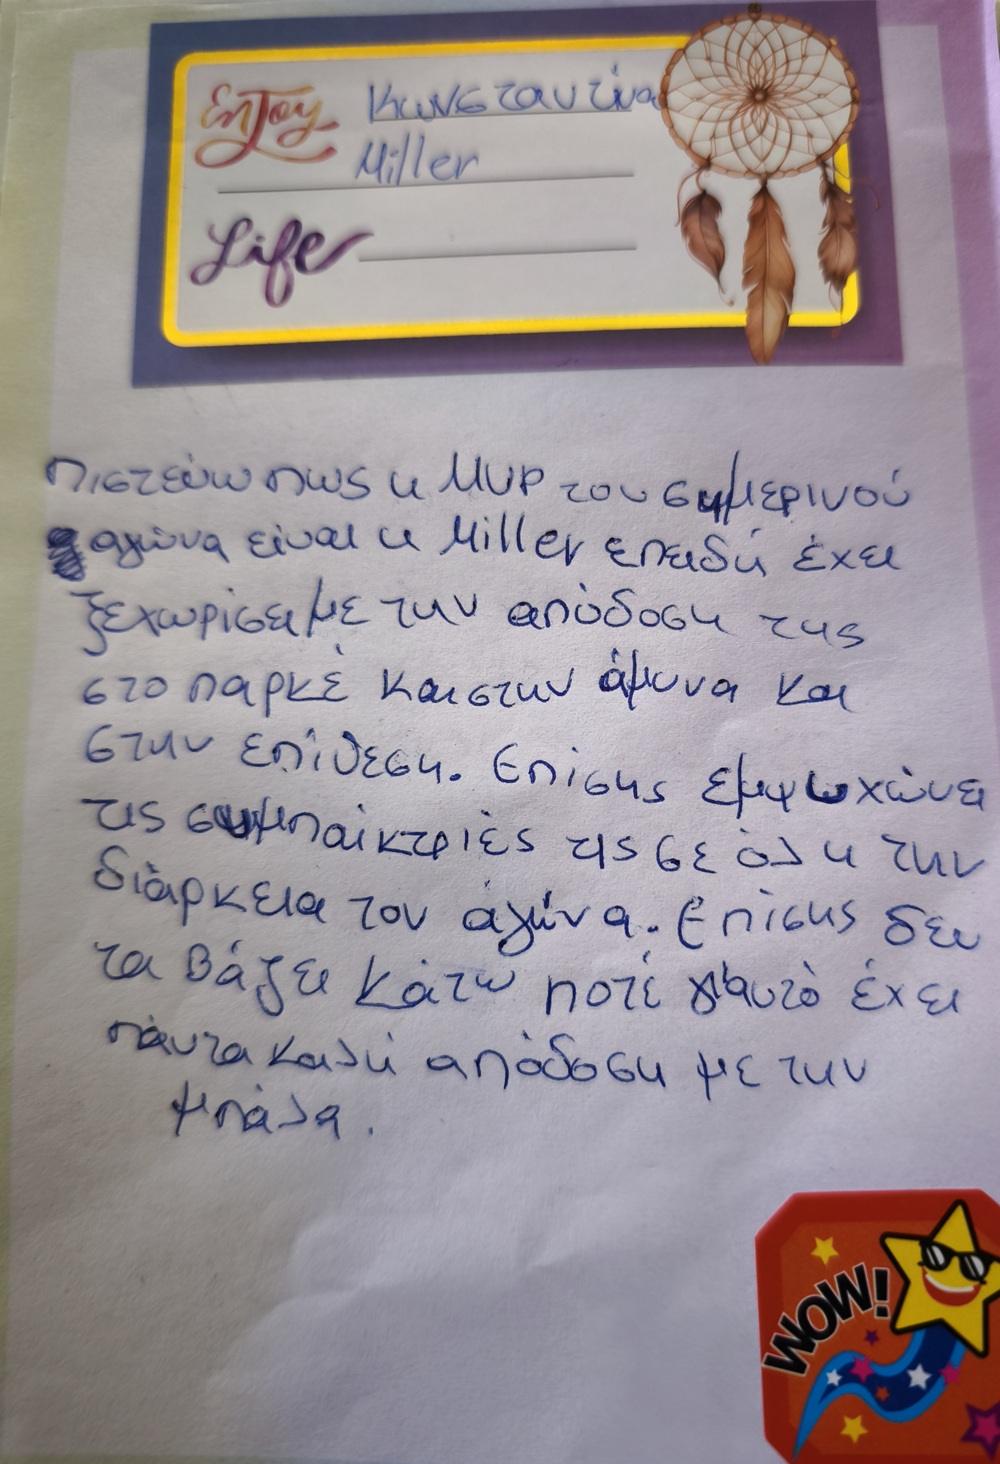 Enjoy
Κωνσταντίνα
Miller
Life
Πιστεύω πως η MVP του σημερινού
αγώνα είναι η Miller επειδή έχει
ξεχωρίσει με την απόδοση της
στο παρκέ και στην άμυνα και
στην επίθεση. Επίσης εμψωχώνει
τις συμπαίκτριές τις σε όλη την
διάρκεια του αγώνα. Επίσης δεν
τα βάζει κάτω ποτέ γι'αυτό έχει
πάντα καλή απόδοση με την
μπάλα.
WOW!